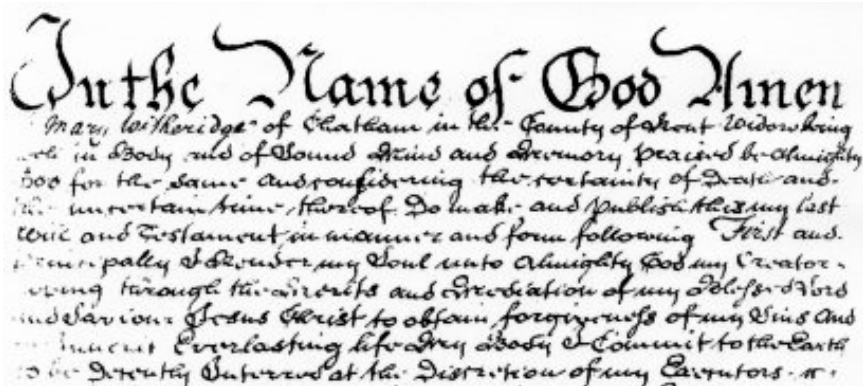 In the Name of God Amen
Mary Witheridge of Chatham in the County of Kent Widow being
in Body and of Sound Mind and Memory praised be Almighty
God for the same and considering the certainty of Death and
the uncertain time thereof Do make and publish this my last
Will and Testament in manner and form following First and
Principally I Render my Soul unto Almighty God my Creator
through the Merits and Mediation of my Blessed Lord
and Saviour Jesus Christ to obtain forgiveness of my Sins and
Everlasting life My Body I Commit to the Earth
to be Decently Interred at the Discretion of my Executors